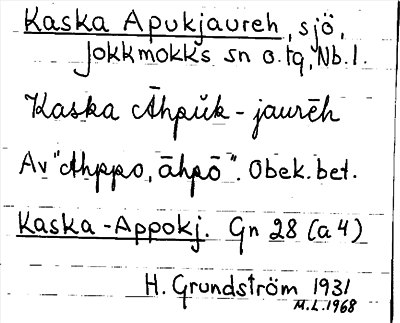 Kaska Apukjaureh, sjö,
Jokkmokks sn o. tg, Nb. l.
Kaska Āhpŭk-jaurēh
Av "Ahppo, āhpō". Obek. bet.
Kaska-Appokj. Gn 28 (a 4)
H. Grundström 1931
M.L. 1968